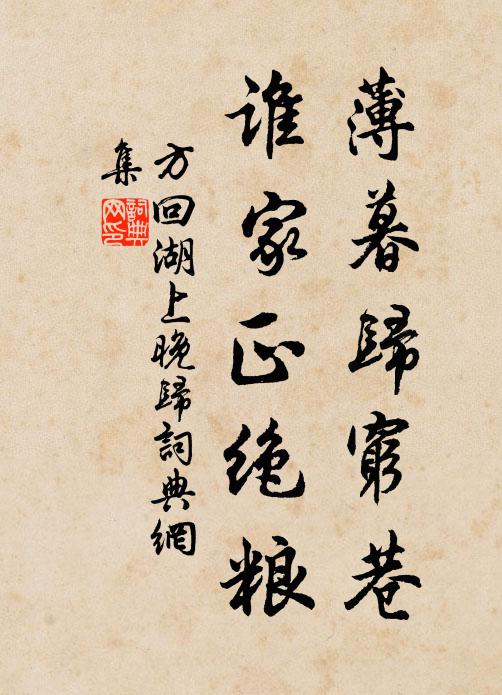 薄暮歸窮巷
谁家正绝粮
方回湖上晚歸詞典網
集
詞典网印